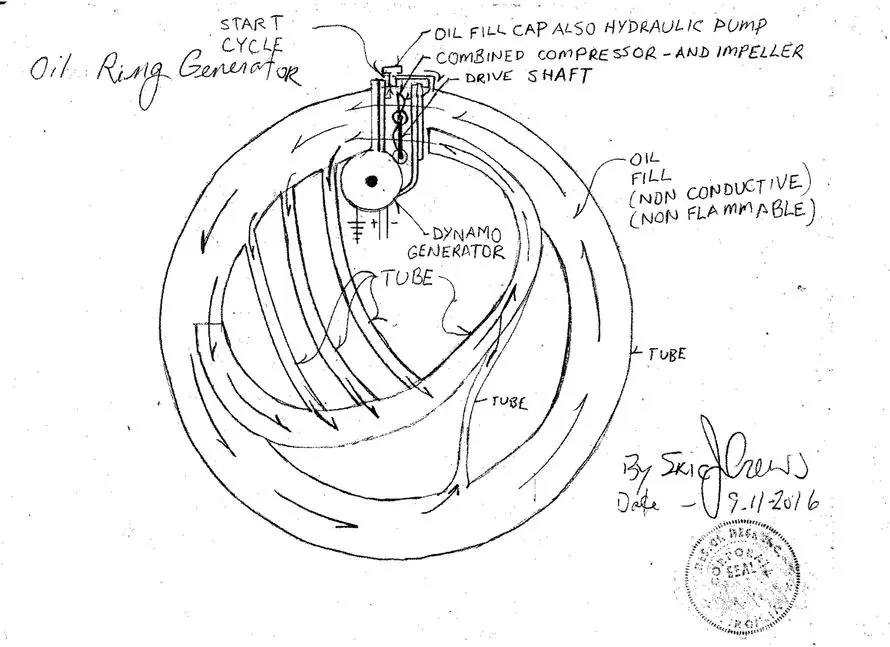 START
CYCLE
Oil Ring Generator
OIL FILL CAP ALSO HYDRAULIC PUMP
COMBINED COMPRESSOR - AND IMPELLER
DRIVE SHAFT
OIL
FILL
(NON CONDUCTIVE)
(NON FLAMMABLE)
+ -
DYNAMO
GENERATOR
TUBE
TUBE
TUBE
By
Date - 9-11-2016
CORPORATE
SEAL